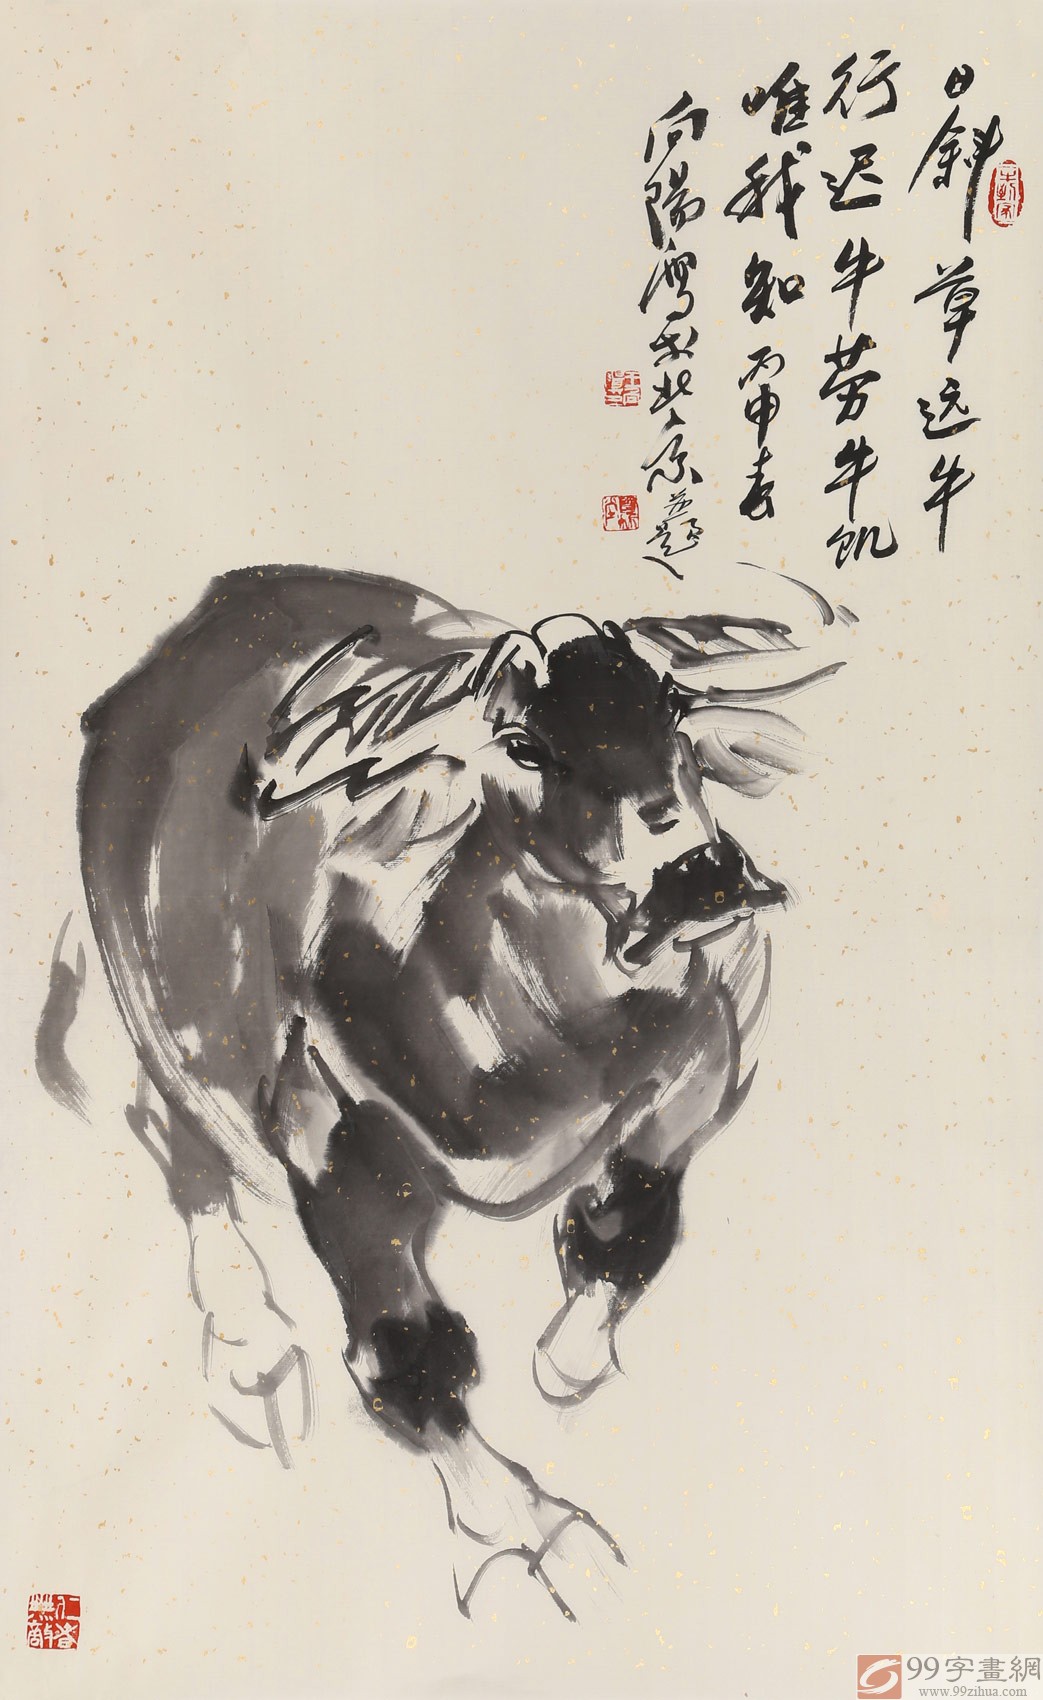 日斜草远牛
行迟牛劳牛饥
唯我知丙申春
向阳写于北京并题
仁者無敵
99字畫網
www.99zihua.com